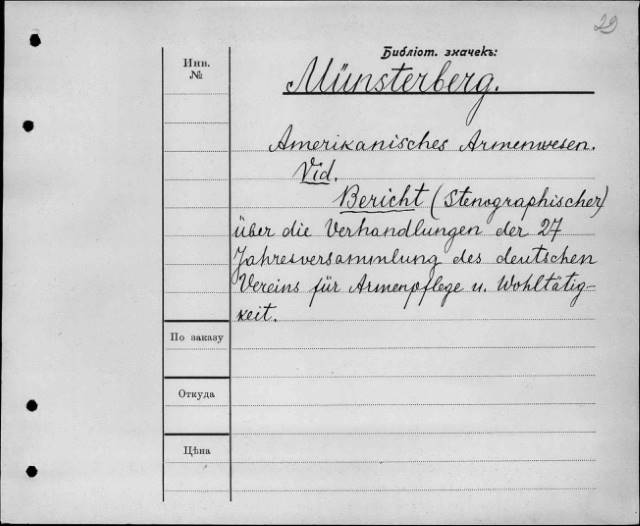 29
Библіот. значекъ:
Инв.
№
Münsterberg.
Amerikanisches Armenwesen.
Vid.
Bericht (Stenographischer)
über die Verhandlungen der 27
Jahresversammlung des deutschen
Vereins für Armenpflege u. Wohltätig-
keit.
По заказу
Откуда
Цѣна